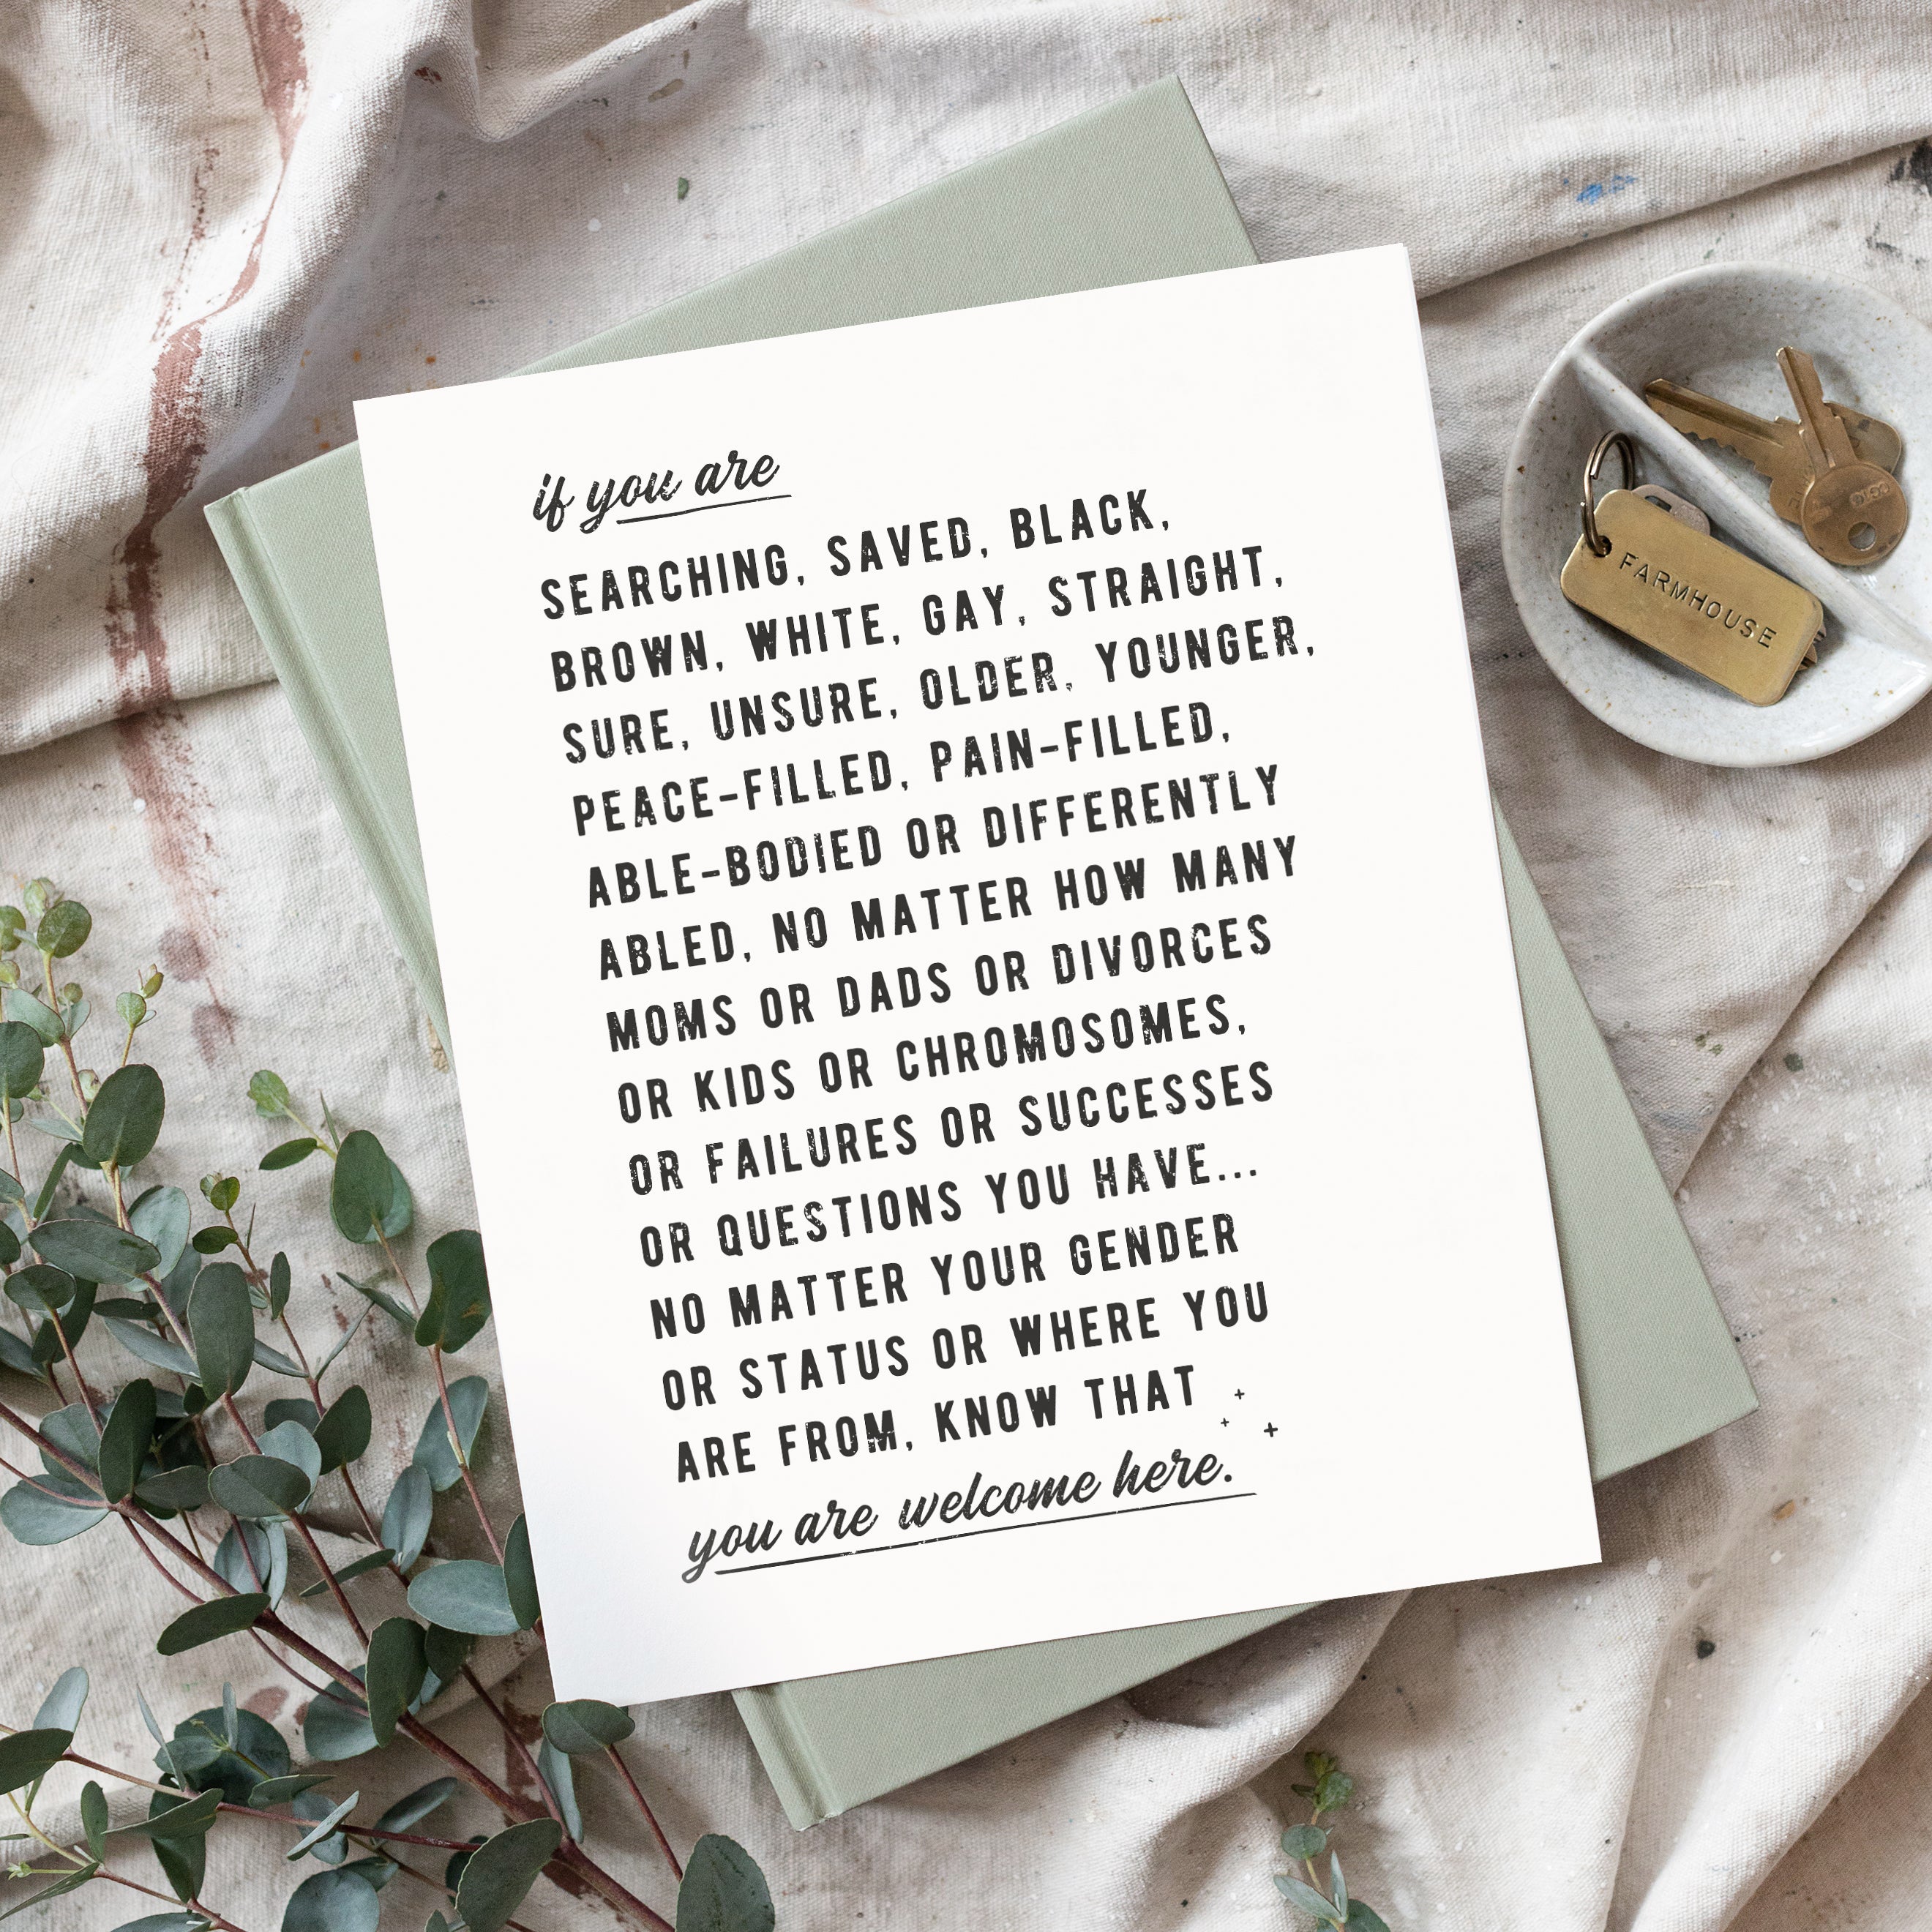 if you are
SEARCHING, SAVED, BLACK,
BROWN, WHITE, GAY, STRAIGHT,
SURE, UNSURE, OLDER, YOUNGER,
PEACE-FILLED, PAIN-FILLED,
ABLE-BODIED OR DIFFERENTLY
ABLED, NO MATTER HOW MANY
MOMS OR DADS OR DIVORCES
OR KIDS OR CHROMOSOMES,
OR FAILURES OR SUCCESSES
OR QUESTIONS YOU HAVE...
NO MATTER YOUR GENDER
OR STATUS OR WHERE YOU
ARE FROM, KNOW THAT
you are welcome here.
FARMHOUSE